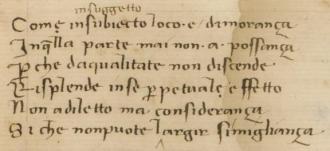 in suggetto
Come in subiecto loco · e / dimorança
In q̄lla parte mai non · a · possança
P̱che daqualitate non discende
Risplende inse p̱petuale effetto
Non adiletto ma · considerança
Si che nonpuote largir simigliança